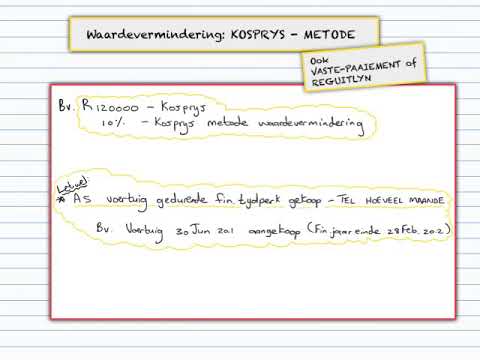 Waardevermindering: KOSPRYS - METODE
Ook
VASTE-PAAIEMENT of
REGUITLYN
Bv. R120000 - Kosprys
10% - Kosprys metode waardevermindering
Letwel:
* AS voertuig gedurende fin. tydperk gekoop - TEL HOEVEEL MAANDE
Bv. Voertuig 30 Jun 20.1 aangekoop (Fin jaareinde 28 Feb. 20.2)